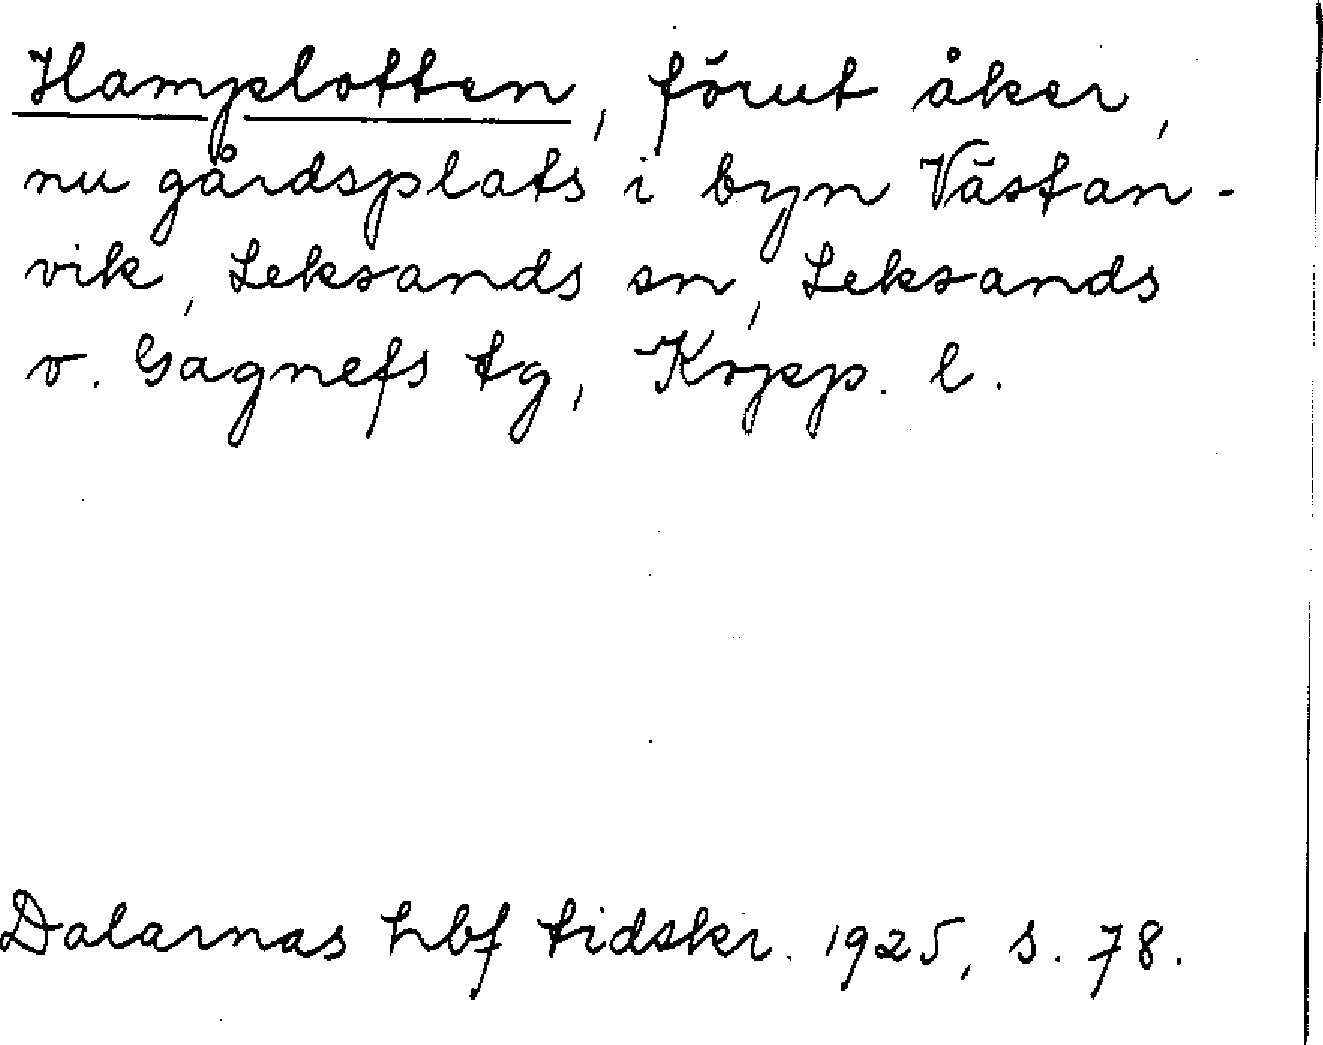 Hamplotten, förut åker,
nu gårdsplats i byn Västan-
vik, Leksands sn, Leksands
o. Gagnefs tg, Kopp. l.
Dalarnas hbf tidskr. 1925, s. 78.